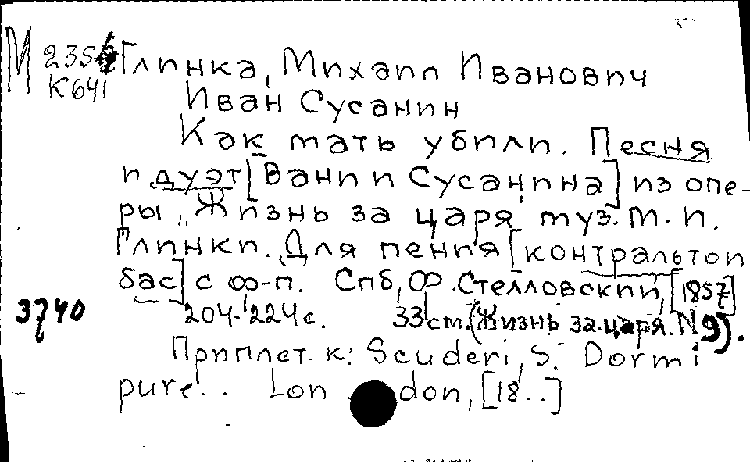 М 235
К641
Глинка, Михаил Иванович
Иван Сусанин
Как мать убили. Песня
и дуэт [Вани и Сусанина] из опе-
ры „Жизнь за царя" муз. М. И.
Глинки. Для пения [контральто и
бас] с ф-п. Спб, Ф. Стелловский, [1857]
3740 204-224 с. 33 см. (Жизнь за царя. N 9).
Приплет. к: Scuderi, S. Dormi
pure... Lon don, [18..]